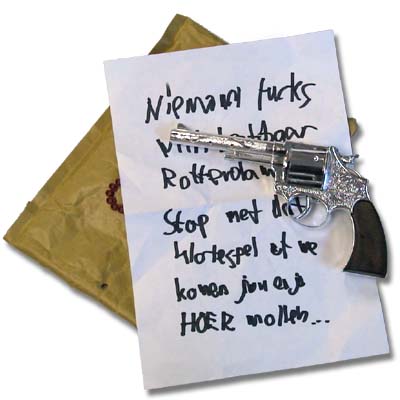 Niemand fucks
Rotterdam
Stop met dit
klotespel of we
komen jou en je
HOER mollen...